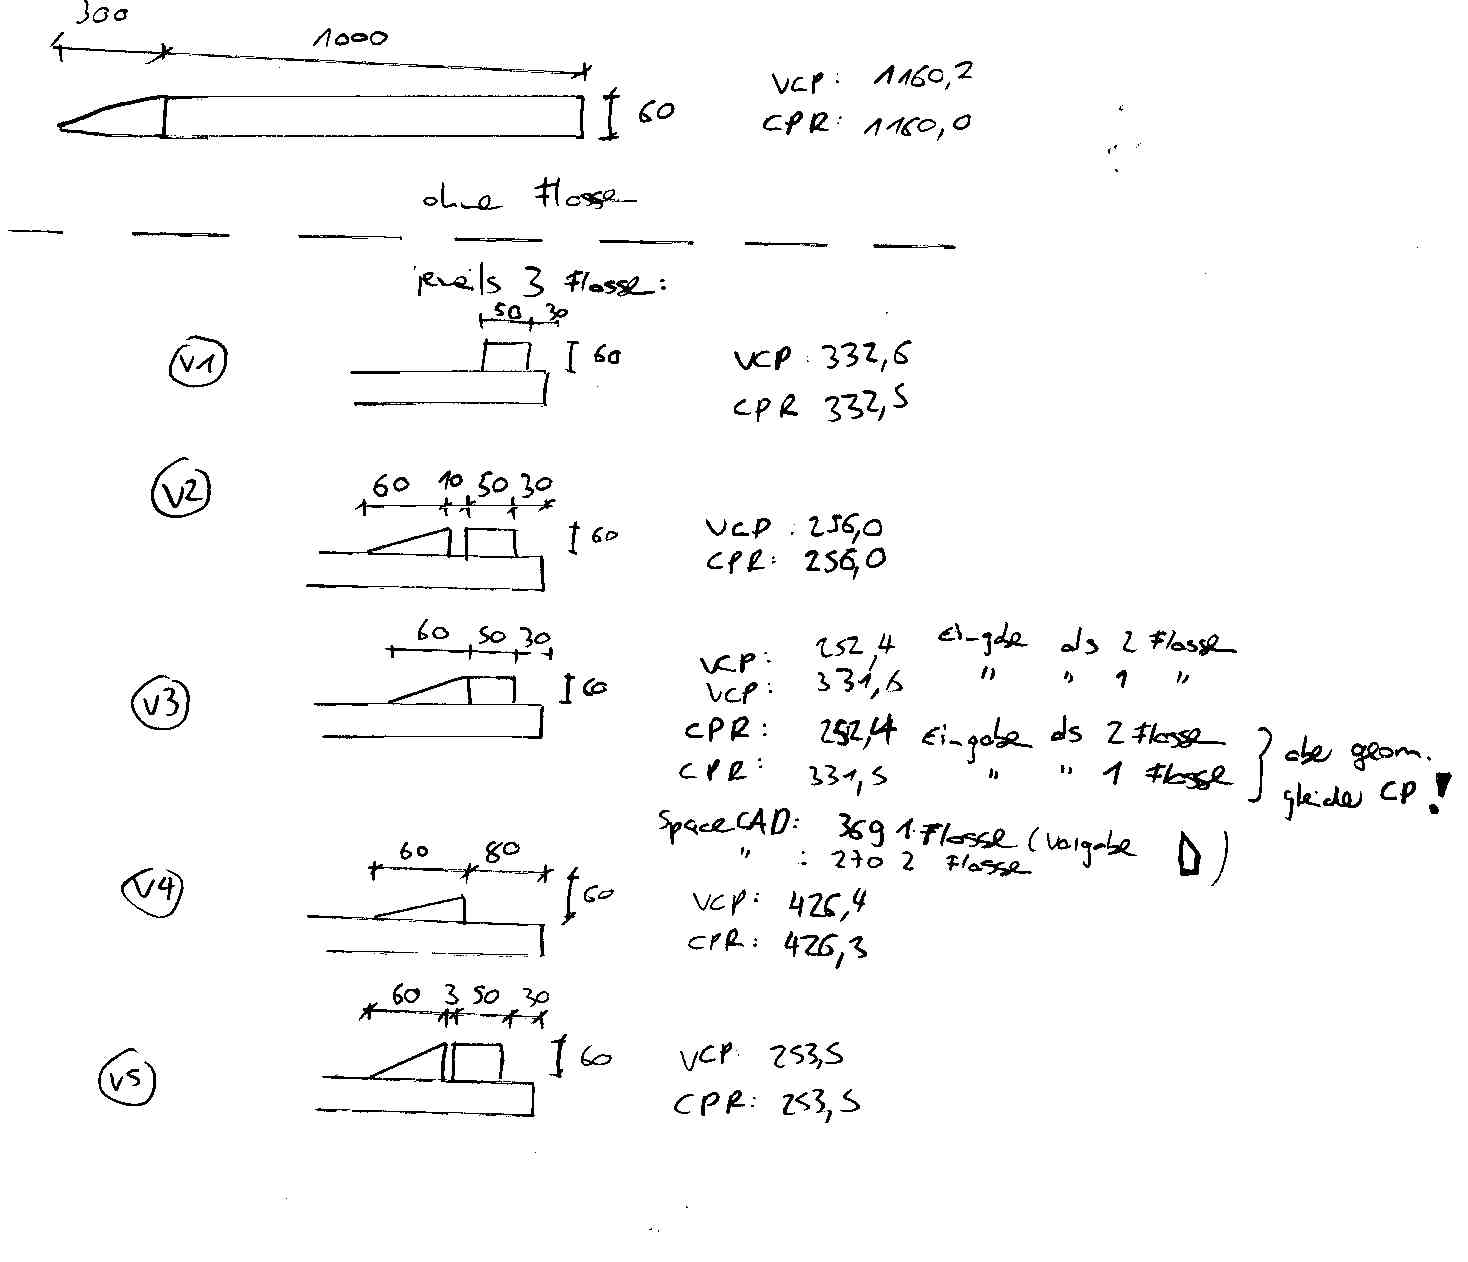 300
1000
60
VCP: 1160,2
CPR: 1160,0
ohne Flosse
jeweils 3 Flosse:
V1
50 30
60
VCP: 332,6
CPR 332,5
V2
60 10 50 30
60
VCP: 256,0
CPR: 256,0
V3
60 50 30
60
VCP: 252,4 Eingabe als 2 Flosse
VCP: 331,6 " " 1 "
CPR: 252,4 Eingabe als 2 Flosse
CPR: 331,5 " " 1 Flosse
aber geom.
gleicher CP!
SpaceCAD: 369 1 Flosse (Vorgabe )
" : 270 2 Flosse
V4
60 80
60
VCP: 426,4
CPR: 426,3
V5
60 3 50 30
60
VCP: 253,5
CPR: 253,5